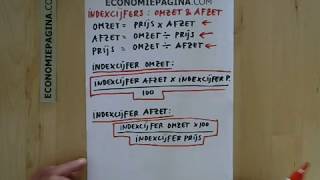 ECONOMIEPAGINA.COM
ECONOMIEPAGINA.COM
INDEXCIJFERS: OMZET & AFZET
OMZET = PRIJS X AFZET ←
AFZET = OMZET ÷ PRIJS ←
PRIJS = OMZET ÷ AFZET ←
INDEXCIJFER OMZET:
INDEXCIJFER AFZET X INDEXCIJFER P.
100
INDEXCIJFER AFZET:
INDEXCIJFER OMZET X 100
INDEXCIJFER PRIJS